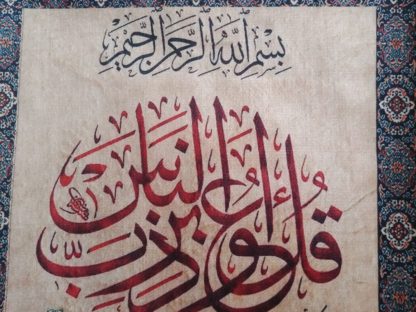 بِسْمِ اللَّهِ الرَّحْمٰنِ الرَّحِيمِ
قُلْ أَعُوذُ بِرَبِّ النَّاسِ